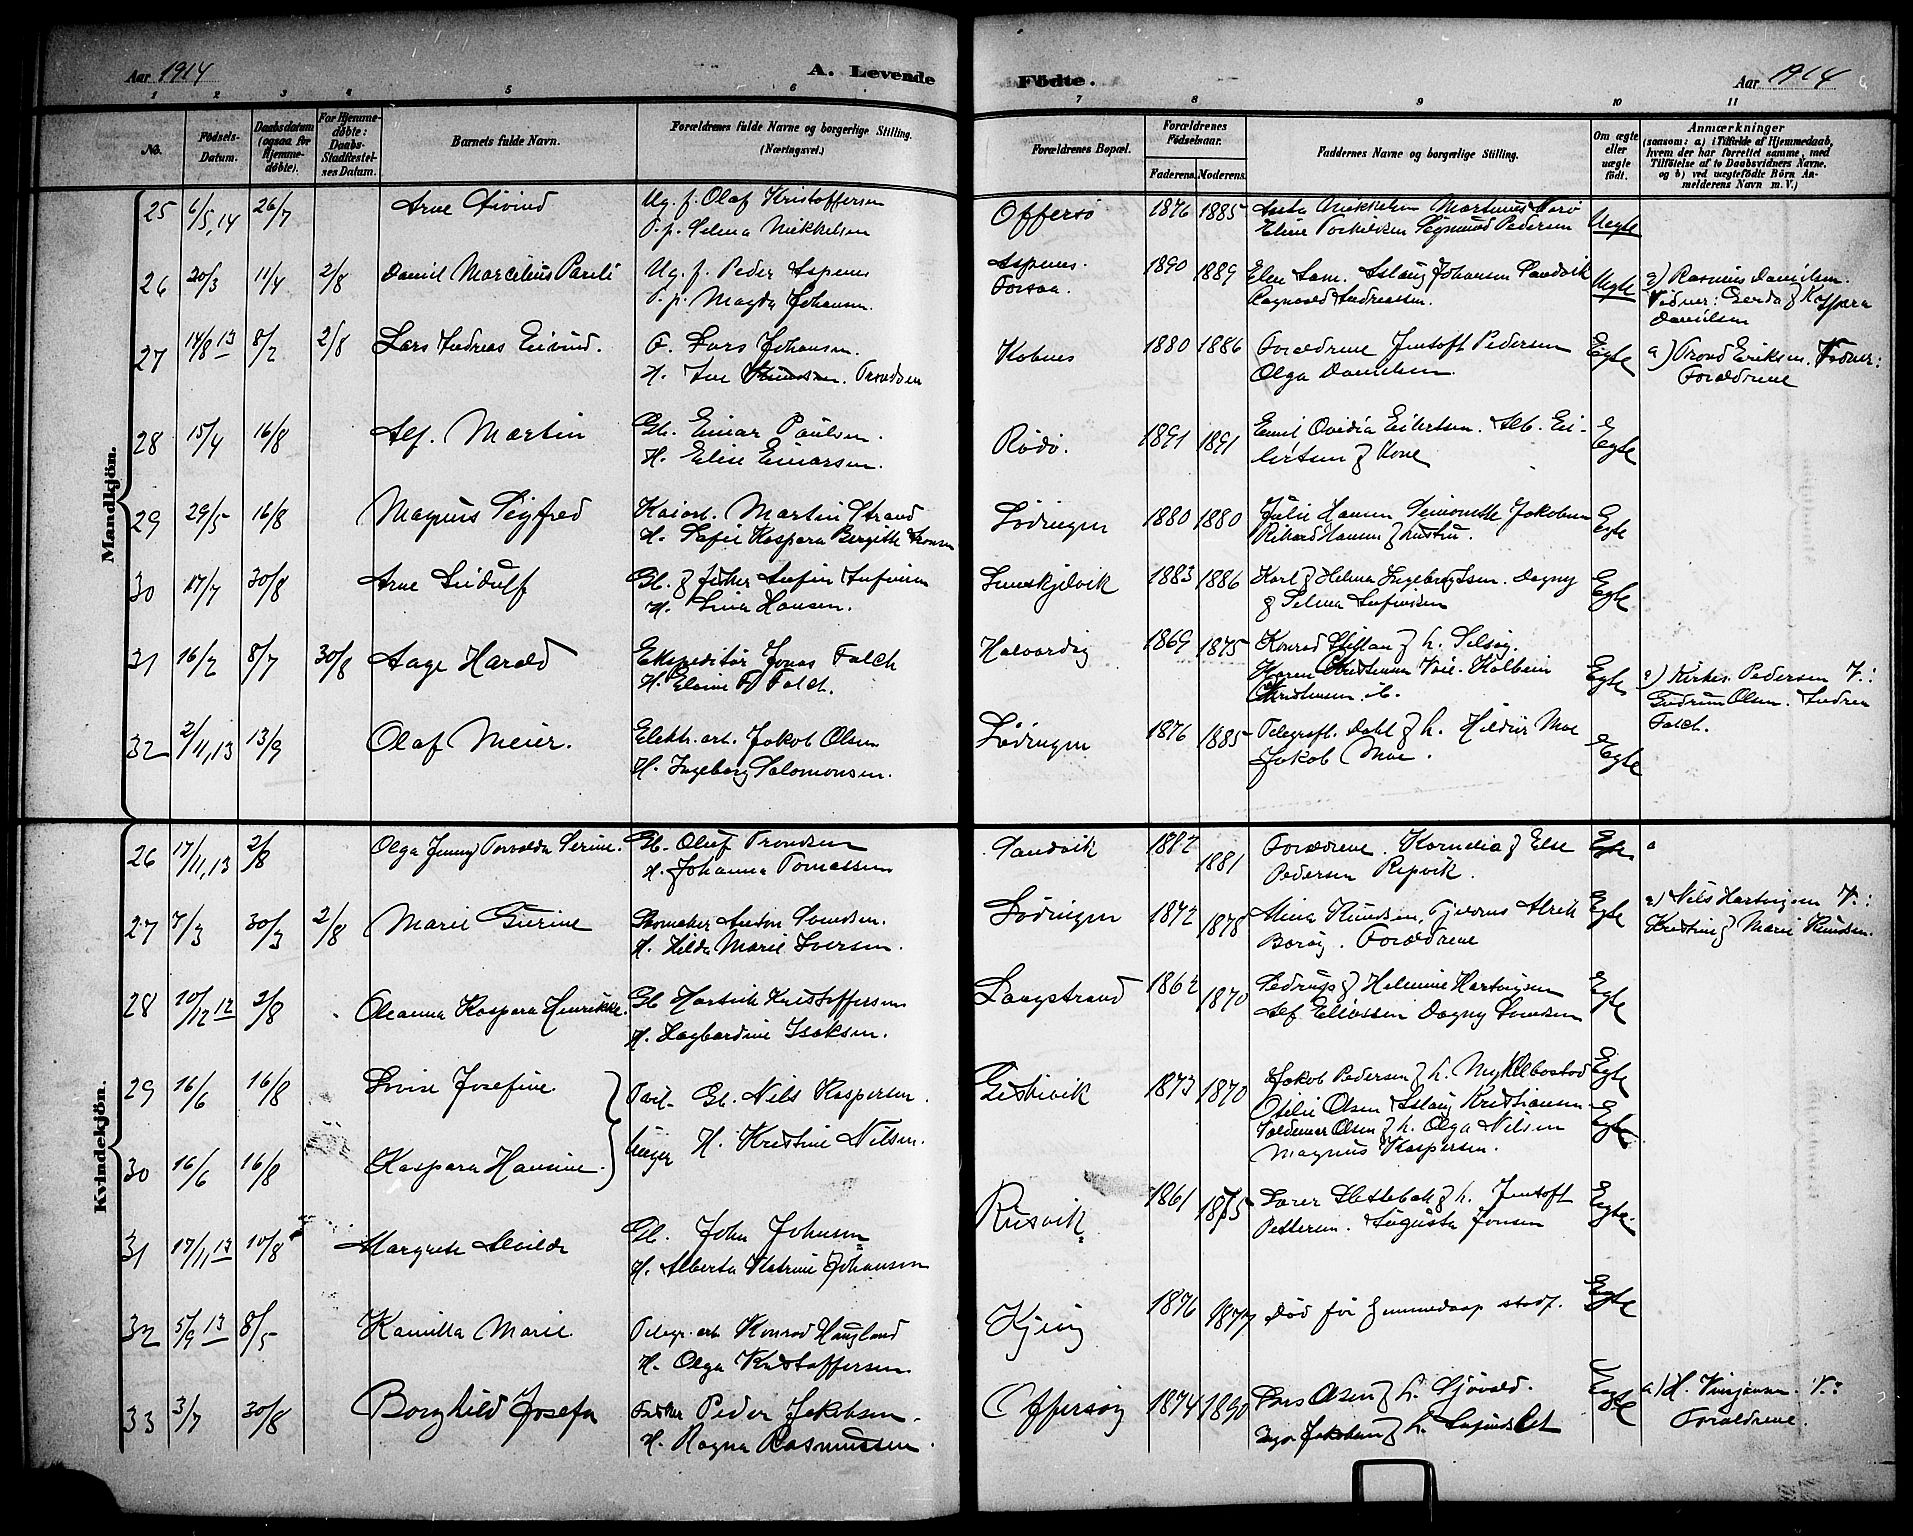 Aar 1914
A. Levende
Fødte.
Aar 1914
1 2 3 4 5 6 7 8 9 10 11
No.
Fødsels-
Datum.
Daabsdatum
(ogsaa for
Hjemme-
døbte).
For Hjemme-
døbte:
Daabs-
Stadfæstel-
ses Datum.
Barnets fulde Navn.
Forældrenes fulde Navne og borgerlige Stilling.
(Næringsvei.)
Forældrenes Bopæl.
Forældrenes
Fødselsaar.
Faderens.
Moderens.
Faddernes Navne og borgerlige Stilling.
Om ægte
eller
uægte
født.
Anmærkninger
(saasom: a) i Tilfælde af Hjemmedaab,
hvem der har forrettet samme, med
Tilføielse af to Daabsvidners Navne,
og b) ved uægtefødte Børn An-
melderens Navn m. V.)
Mandkjön.
25 6/5,14 26/7 Arne Eivind
Ug. f. Olaf Kristoffersen
P. p. Selma Mikkelsen
Offersø 1876 1885
Martinus
Sigmund Pedersen
Uegte
26 20/3 11/4 2/8 Daniel Marcelius Pareli
Ug. f. Peder Aspenes
P. p. Magda Johansen.
Aspenes.
Forsaa.
1890 1889
Else Sam. Aslaug Johansen Sandvik
Ragnvald Andreassen.
Uegte
a) Rasmus Danielsen.
Vidner: Gerda & Kaspara
Danielsen
27 14/8 13 8/2 2/8 Lars Andreas Eivind.
F. Lars Johansen.
H. Trondsen
Kobnes 1880 1886
Forældrene Jentoft Pedersen
Olga Danielsen.
Egte
a) Trond Eriksen. Vidner:
Forældrene
28 15/4 16/8 Alf. Martin
Gb. Einar Paulsen.
H. Elise Einarsen.
Rødø. 1891 1891
Emil Ovidia Eilertsen. Alb. Ei-
lertsen & Kone
Egte
29 29/5 16/8 Magnus Sigfred
Martin Strand
H. Kaspara Bergitte
Lødingen 1880 1880
Julie Hansen Jakobsen
Rikard Hansen & hustru.
Egte
30 17/7 30/8 Arne Leidulf
Gb. & fisker
H. Lina Hansen.
1883 1886
Karl & Helma Ingebrigtsen. Dagny
& Selma
Egte
31 16/2 8/7 30/8 Aage Harald
Ekspeditør Jonas Falch
H. Falch.
1869 1875
Konrad & h.
Karen Christensen
Christensen
Egte
a) Kirkes. Pedersen V.:
Gudrun Olsen. Andrea
Falch.
32 2/11,13 13/9 Olaf Meier.
Elektr. arb. Jakob Olsen
H. Ingeborg Salomonsen.
Lødingen 1876 1885
Telegrafb. Dahl & h. Hildur Moe
Jakob Moe.
Egte
Kvindekjön.
26 17/11,13 2/8 Olga Jenny Torvalda Serine.
Gb. Oluf Trondsen
H. Johanna Tomassen
Sandvik 1882 1881
Forældrene. Kornelia & Else
Pedersen Repvik.
Egte
27 7/3 30/3 2/8 Marie Gurine
Skomaker Anton Svendsen.
H. Hilda Marie Iversen.
Lødingen 1872 1878
Borøy. Forældrene
Egte
a) Nils Hartvigsen V.:
Kristine & Marie Knudsen.
28 10/12 12 2/8 Oleanna Kaspara Henrikke.
Gb Hartvik Kristoffersen
H. Hagbardine Isaksen.
Langstrand 1862 1870
Ludvig & Helmine Hartvigsen
Alf Eliassen Dagny
Egte
29 16/6 16/8 Lovise Josefine
Tvil- Gb. Nils Kaspersen.
linger H. Kristine Nilsen.
1873 1870
Jakob Pedersen & h. Myklebostad
Otilie Olsen Aslaug Kristiansen
Valdemar Olsen & h. Olga Nilsen
Magnus Kaspersen.
Egte
Egte
30 16/6 16/8 Kaspara Hansine.
31 17/11,13 10/8 Margrete Alvilde
Gb. John Johnsen
H. Alberta Katrine Johansen
Rinsvik 1861 1875
Slettebak & h. Jentoft
Pettersen. Augusta Jonsen
Egte.
32 5/9 13 8/5 Kamilla Marie
Telegr. arb Konrad Haugland
H. Olga Kristoffersen
Kjeøy 1876 1877
Død før hjemmedaap stadf.
Egte
33 3/7 30/8 Borghild Josefa
Fisker Peder Jakobsen.
H. Ragna Rasmussen.
Offersøy 1874 1890
Lars Olsen & h. Sjøvold.
Jakobsen & h.
Egte
a) H. V.:
Forældrene.